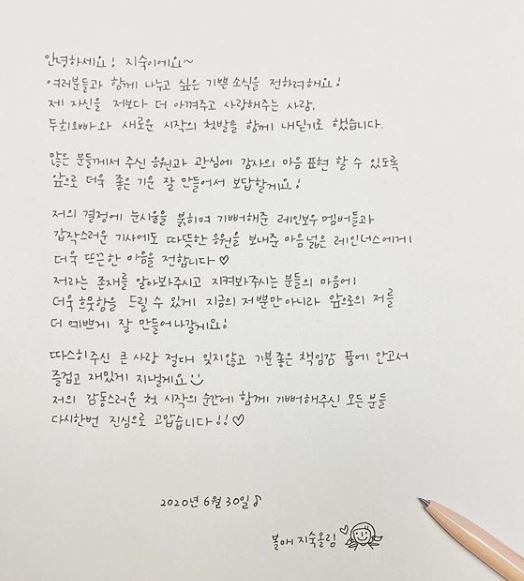 안녕하세요! 지숙이에요~
여러분들과 함께 나누고 싶은 기쁜 소식을 전하려해요!
제 자신을 저보다 더 아껴주고 사랑해주는 사람,
두희오빠와 새로운 시작의 첫발을 함께 내딛기로 했습니다.
많은 분들께서 주신 응원과 관심에 감사의 마음 표현 할 수 있도록
앞으로 더욱 좋은 기운 잘 만들어서 보답할게요!
저의 결정에 눈시울을 붉히며 기뻐해준 레인보우 멤버들과
갑작스러운 기사에도 따뜻한 응원을 보내준 마음 넓은 레인너스에게
더욱 뜨끈한 마음을 전합니다♡
저라는 존재를 알아봐주시고 지켜봐주시는 분들의 마음에
더욱 흐뭇함을 드릴 수 있게 지금의 저뿐만아니라 앞으로의 저를
더 예쁘게 잘 만들어나갈게요!
따스히주신 큰 사랑 절대 잊지않고 기분좋은 책임감 품에 안고서
즐겁고 재밌게 지낼게요
저의 감동스러운 첫 시작의 순간에 함께 기뻐해주신 모든 분들
다시한번 진심으로 고맙습니다!!♡
2020년 6월 30일♪
지숙올림